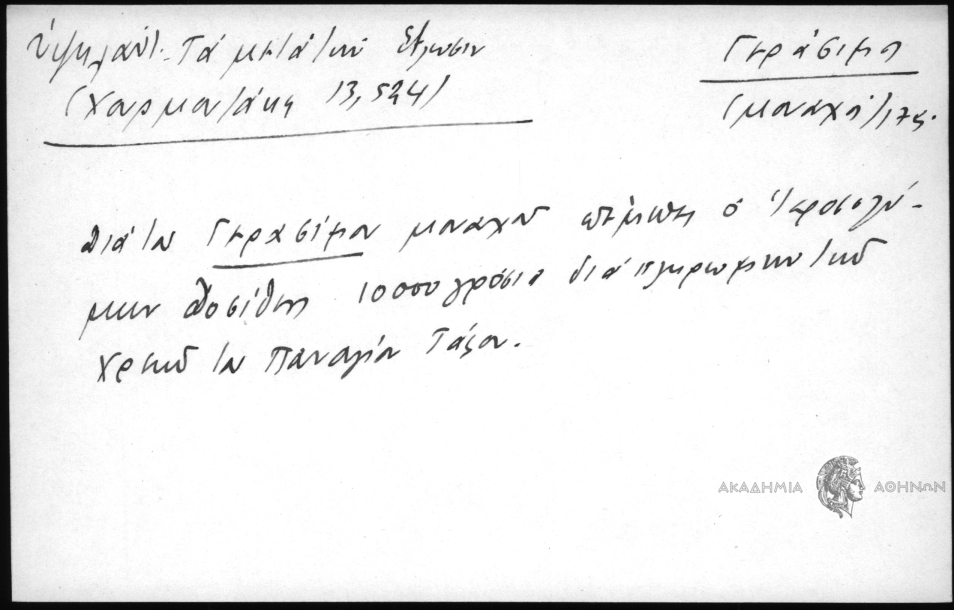 Ὑψηλάντ. Τὰ μετὰ τὴν Ἅλωσιν
(Χουρμουζάκη 13, 524)
Γεράσιμος
(μοναχὸς) 17
Διὰ τοῦ Γερασίμου μοναχοῦ ὁ Ἱεροσολύ-
μων Δοσίθεος 10000 γρόσια διὰ πληρωμὴν τοῦ
χρέους τοῦ Παναγίου Τάφου.
ΑΚΑΔΗΜΙΑ ΑΘΗΝΩΝ